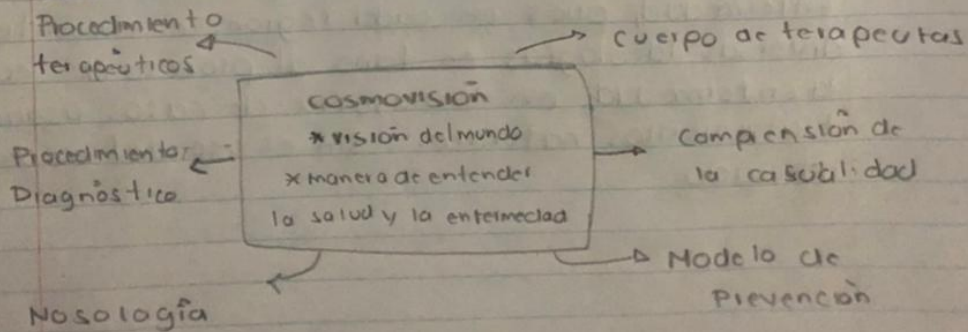 Procedimiento
terapéuticos
cuerpo de terapeutas
cosmovisión
* visión del mundo
* manera de entender
la salud y la enfermedad
Procedimiento
Diagnóstico
Comprensión de
la casualidad
Modelo de
Prevención
Nosología